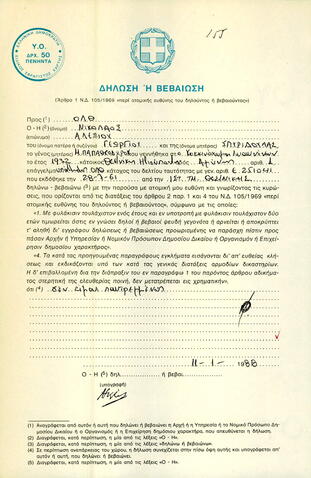 155
ΕΛΛΗΝΙΚΗ ΔΗΜΟΚΡΑΤΙΑ
Υ.Ο.
ΔΡΧ. 50
ΠΕΝΗΝΤΑ
ΔΗΛΩΣΗ Ή ΒΕΒΑΙΩΣΗ
(Άρθρο 1 Ν.Δ. 105/1969 «περί ατομικής ευθύνης του δηλούντος ή βεβαιούντος»)
Προς (1) ΟΛΘ
Ο - Η (όνομα) ΝΙΚΟΛΑΟΣ (επώνυμο)
ΑΛΕΠΙΟΥ
του (όνομα πατέρα) ΓΕΩΡΓΙΟΥ και (όνομα μητέρας) ΣΠΥΡΙΔΟΥΛΑΣ
το γένος μητέρας που γεννήθηκε στο Ιωαννίνων
έτος 1932 κάτοικος Θεσ/νίκη αριθ.
επάγγελμα ΟΛΘ κάτοχος του δελτίου ταυτότητας με αριθ.
που εκδόθηκε την 28-7-61 από ΘΕΣ/ΝΙΚΗΣ
δηλώνω - βεβαιώνω (2) με την παρούσα με ατομική μου ευθύνη και γνωρίζοντας τις κυρώσεις,
που ορίζονται από τις διατάξεις του άρθρου 2 παρ. 1 και 4 του Ν.Δ. 105/1969 «περί
ατομικής ευθύνης του δηλούντος ή βεβαιούντος», σύμφωνα με τις οποίες:
«1. Με φυλάκισιν τουλάχιστον ενός έτους και εν υποτροπή με φυλάκισιν τουλάχιστον δύο
ετών τιμωρείται όστις εν γνώσει δηλοί ή βεβαιοί ψευδή γεγονότα ή αρνείται ή αποκρύπτει
τ' αληθή δι' εγγράφου δηλώσεως ή βεβαιώσεως προωρισμένης να παράσχη πίστιν προς
πάσαν Αρχήν ή Υπηρεσίαν ή Νομικόν Πρόσωπον Δημοσίου Δικαίου ή Οργανισμόν ή Επιχείρησιν
δημοσίου χαρακτήρος».
«4. Τα κατά της προηγουμένας παραγράφους εγκλήματα εισάγονται δι' απ' ευθείας κλήσεως
και εκδικάζονται υπό των κατά τας γενικάς διατάξεις αρμοδίων δικαστηρίων.
Η δ' επιβαλλομένη δια την διάπραξιν του εν παραγράφω 1 του παρόντος άρθρου αδικήματος
στερητική της ελευθερίας ποινή, δεν μετατρέπεται εις χρηματικήν».
ότι (4) δεν είμαι παντρεμένος
11 - 1 - 1988
Ο - Η (5) δηλ ή βεβαι
(υπογραφή)
(1) Αναγράφεται από αυτόν ή αυτή που δηλώνει ή βεβαιώνει η Αρχή ή η Υπηρεσία ή το Νομικό Πρόσωπο Δημοσίου
Δικαίου ή ο Οργανισμός ή η Επιχείρηση δημοσίου χαρακτήρα, που απευθύνεται η δήλωση.
(2) Διαγράφεται, κατά περίπτωση, η μία από τις λέξεις «Ο - Η».
(3) Διαγράφεται, κατά περίπτωση, η μία από τις λέξεις «δηλώνω ή βεβαιώνω».
(4) Σε περίπτωση ανεπάρκειας του χώρου, η δήλωση συνεχίζεται στην πίσω όψη αυτής και υπογράφεται απ'
αυτόν ή αυτή που δηλώνει ή βεβαιώνει.
(5) Διαγράφεται, κατά περίπτωση, η μία από τις λέξεις «Ο - Η».